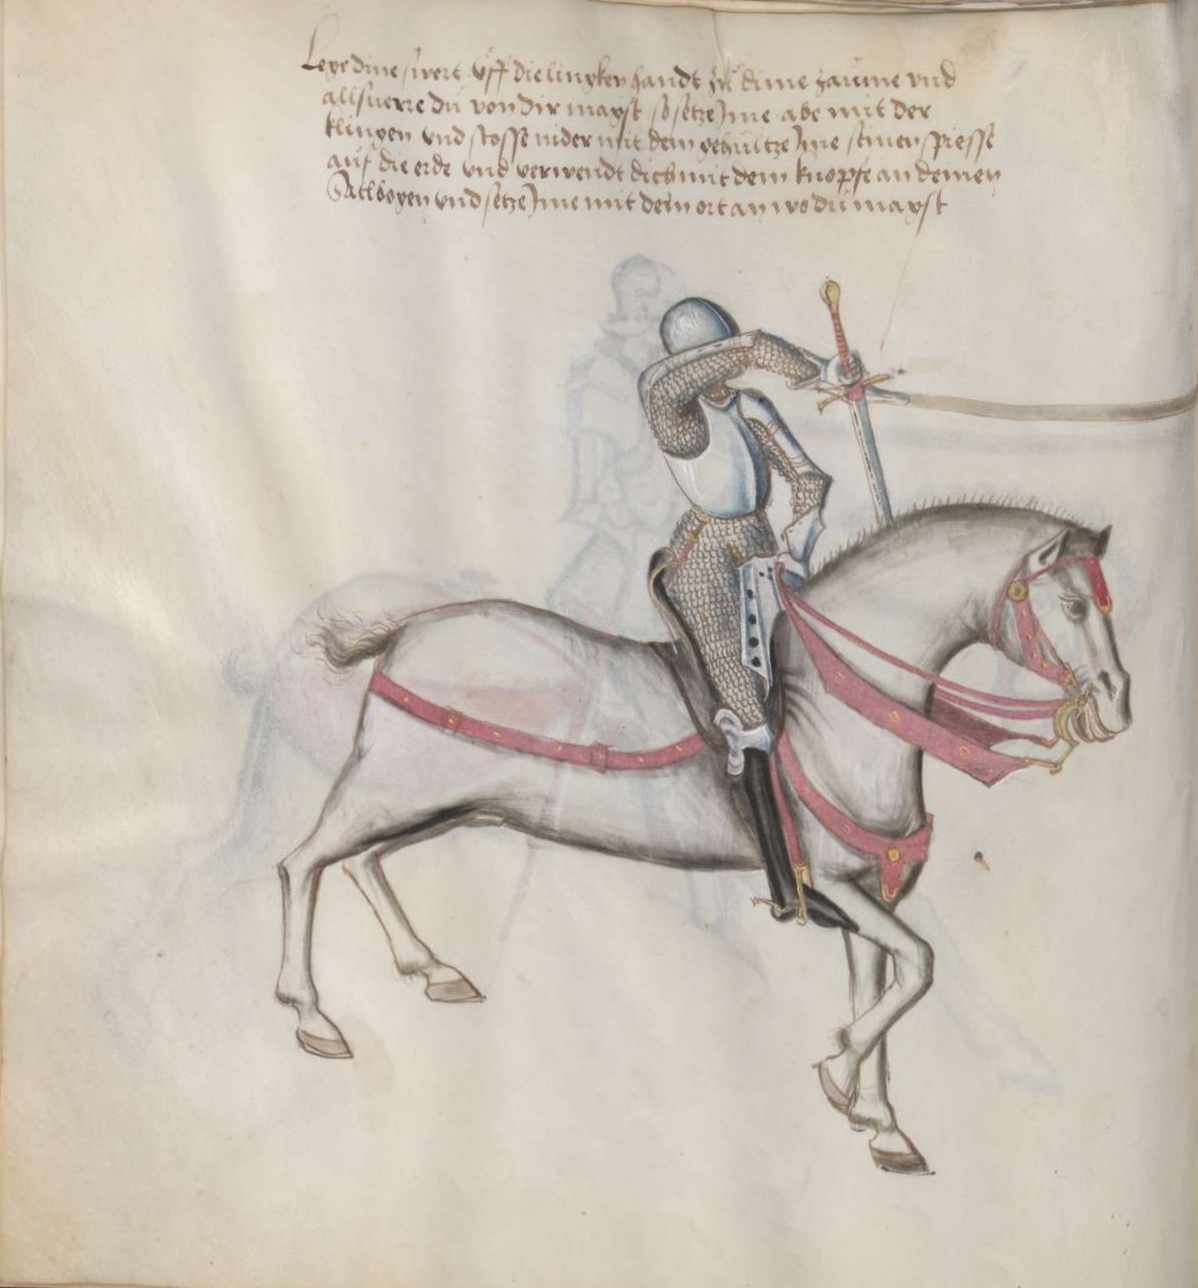 Lege dine swert vff die lingken handt zu dime zaume vnd
allsuerre du von dir magst so setze Jme abe mit der
klingen vnd stosse nider mit dem gehultze Jme seinen spiesse
auf die erde vnd verwendt dich mit dem knopfe an deinen
Satlbogen vnd setze Jme mit dem ort an wo du magst